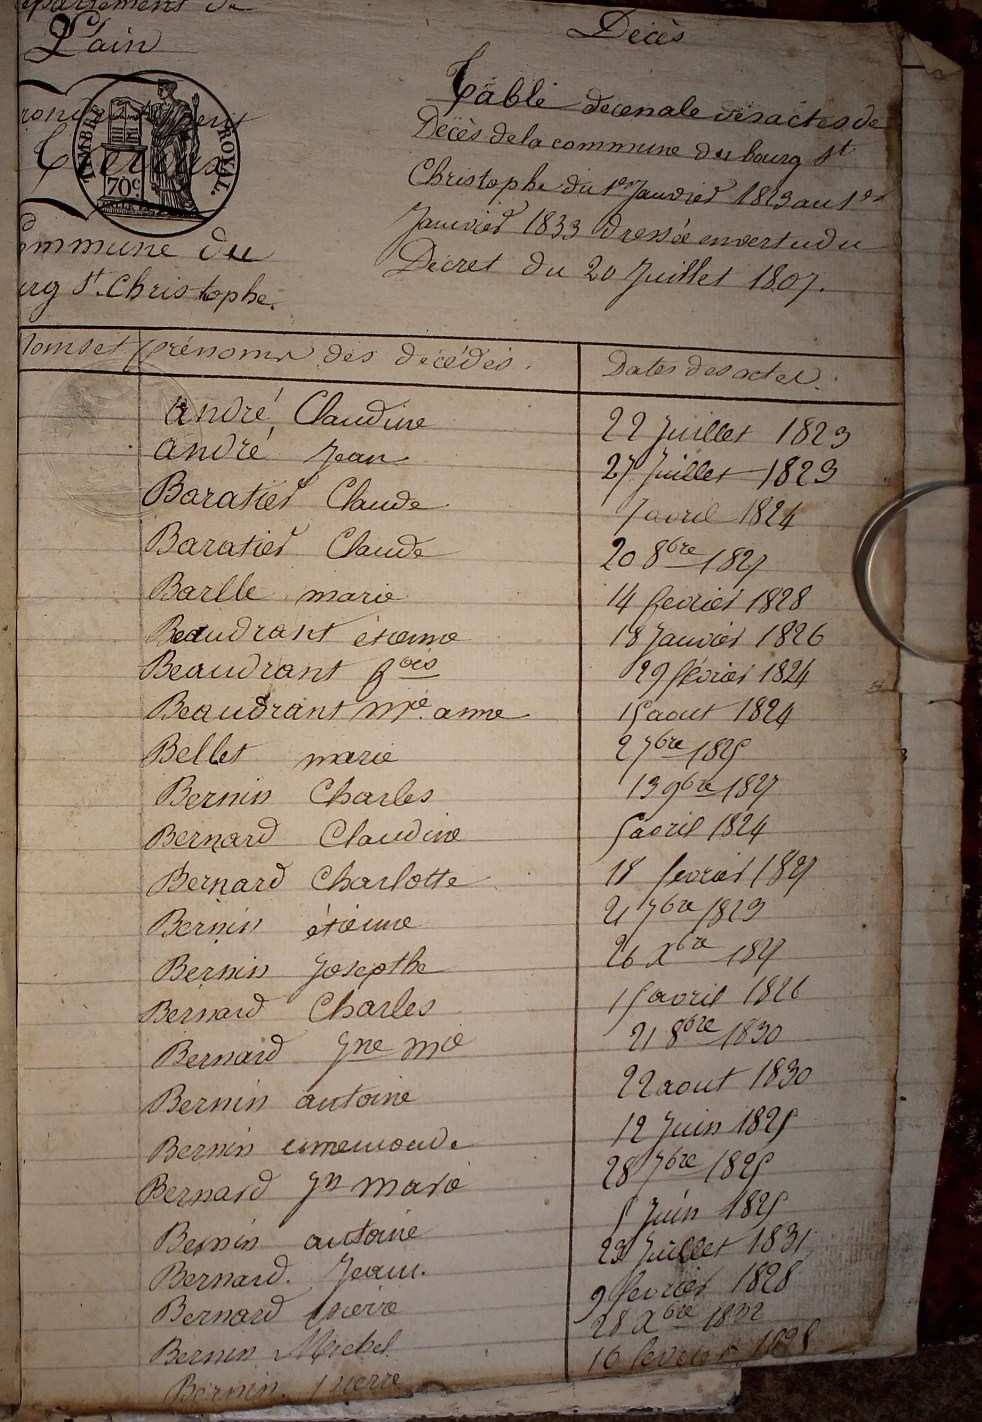 Décès
Département de
L'ain
TIMBRE ROYAL
70c
Commune du
bourg St. Christophe.
Table décenale des actes de
Décès de la commune du bourg St
Christophe du 1er Janvier 1823 au 1er
Janvier 1833 dressée en vertu du
Décret du 20 Juillet 1807.
Noms et prénoms des décédés. Dates des actes.
andré, Claudine 22 Juillet 1823
andré Jean 27 Juillet 1823
Baratier Claude avril 1824
Baratier Claude 20 8bre
Barlle marie 14 fevrier 1828
Beaudrant étienne 18 Janvier 1826
Beaudrant fois 29 février 1824
Beaudrant Mie anne 15 aout 1824
Bellet marie 2 7bre 1825
Bernin Charles 13 9bre
Bernard Claudine 5 avril 1824
Bernard Charlotte 18 fevrier
Bernin étienne 21 7bre 1823
Bernin Josepthe 26 Xbre
Bernard Charles 15 avril 1826
Bernard Jne Mie 21 8bre 1830
Bernin antoine 22 aout 1830
Bernin 12 Juin 1825
Bernard Jn Marie 28 7bre 1825
Bernin antoine 5 Juin 1825
Bernard. Jean. 23 Juillet 1831
Bernard pierre 9 fevrier 1828
Bernin Michel 28 Xbre
Bernin pierre 16 fevrier